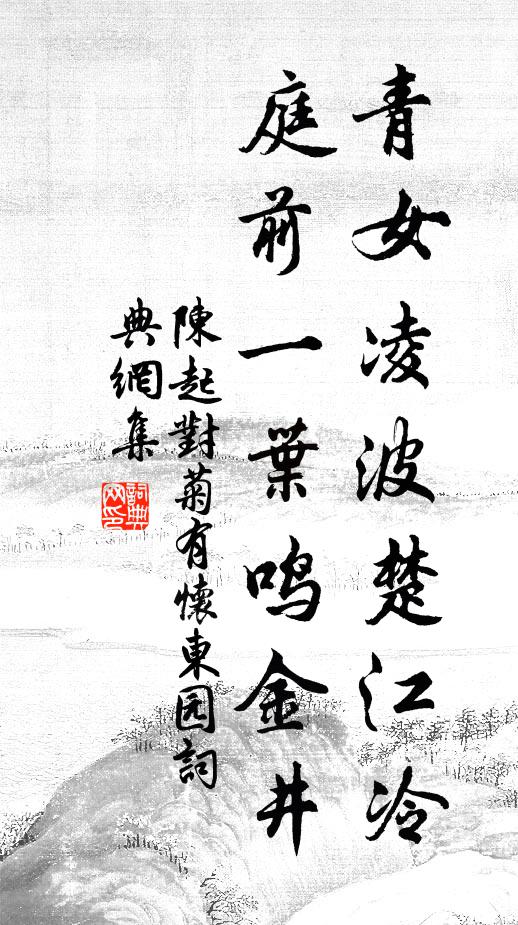 青女凌波楚江冷
庭前一葉鳴金井
陳起對菊有懷東园詞
典網集
詞典
网印